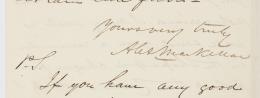 Yours very truly
Alex Mackellar
P.S.
If you have any good